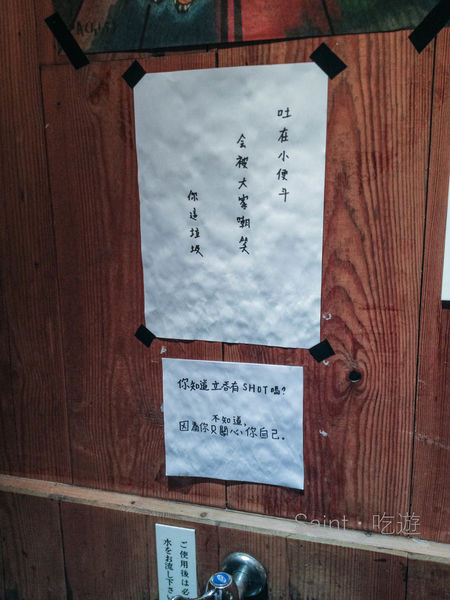 吐在小便斗
会被大家嘲笑
你這垃圾
你知道立吞有SHOT嗎?
不知道,
因為你只關心你自己.
Saint・吃遊
ご使用後は必
水をお流し下さい